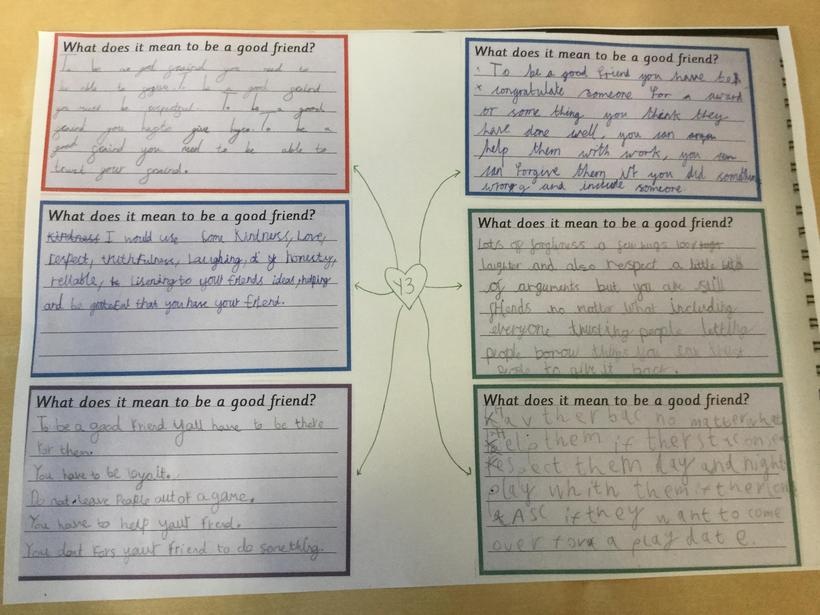 What does it mean to be a good friend?
To be a good freind you need to
be able to forgive. To be a good freind
you must be respectful. To be a good
freind you hafto give hugs. To be a
good freind you need to be able to
trust your freind.
What does it mean to be a good friend?
kindness I would use some kindness, Love,
respect, truthfulness, Laughing, honesty,
reliable, listening to your friends ideas, helping
and be grateful that you have your friend.
What does it mean to be a good friend?
To be a good Friend yall have to be there
for them.
You have to be loyolt.
Do not leave People out of a game.
You have to help yout frend.
You dont fors yout friend to do something.
Y3
What does it mean to be a good friend?
To be a good friend you have to
congratulate someone for a award
or some thing you think they
have done well, you can
help them with work, you
can forgive them if you did something
wrong and include someone
What does it mean to be a good friend?
Lots of forgivness a few hugs 100%
laughter and also respect a little bit
of arguments but you are still
friends no matter what including
everyone trusting people letting
people borrow things you can trust
people to give it back.
What does it mean to be a good friend?
Hav ther bac no matter what
Help them if ther
respect them day and night
play whith them if ther
ASC if they want to come
over for a play date.